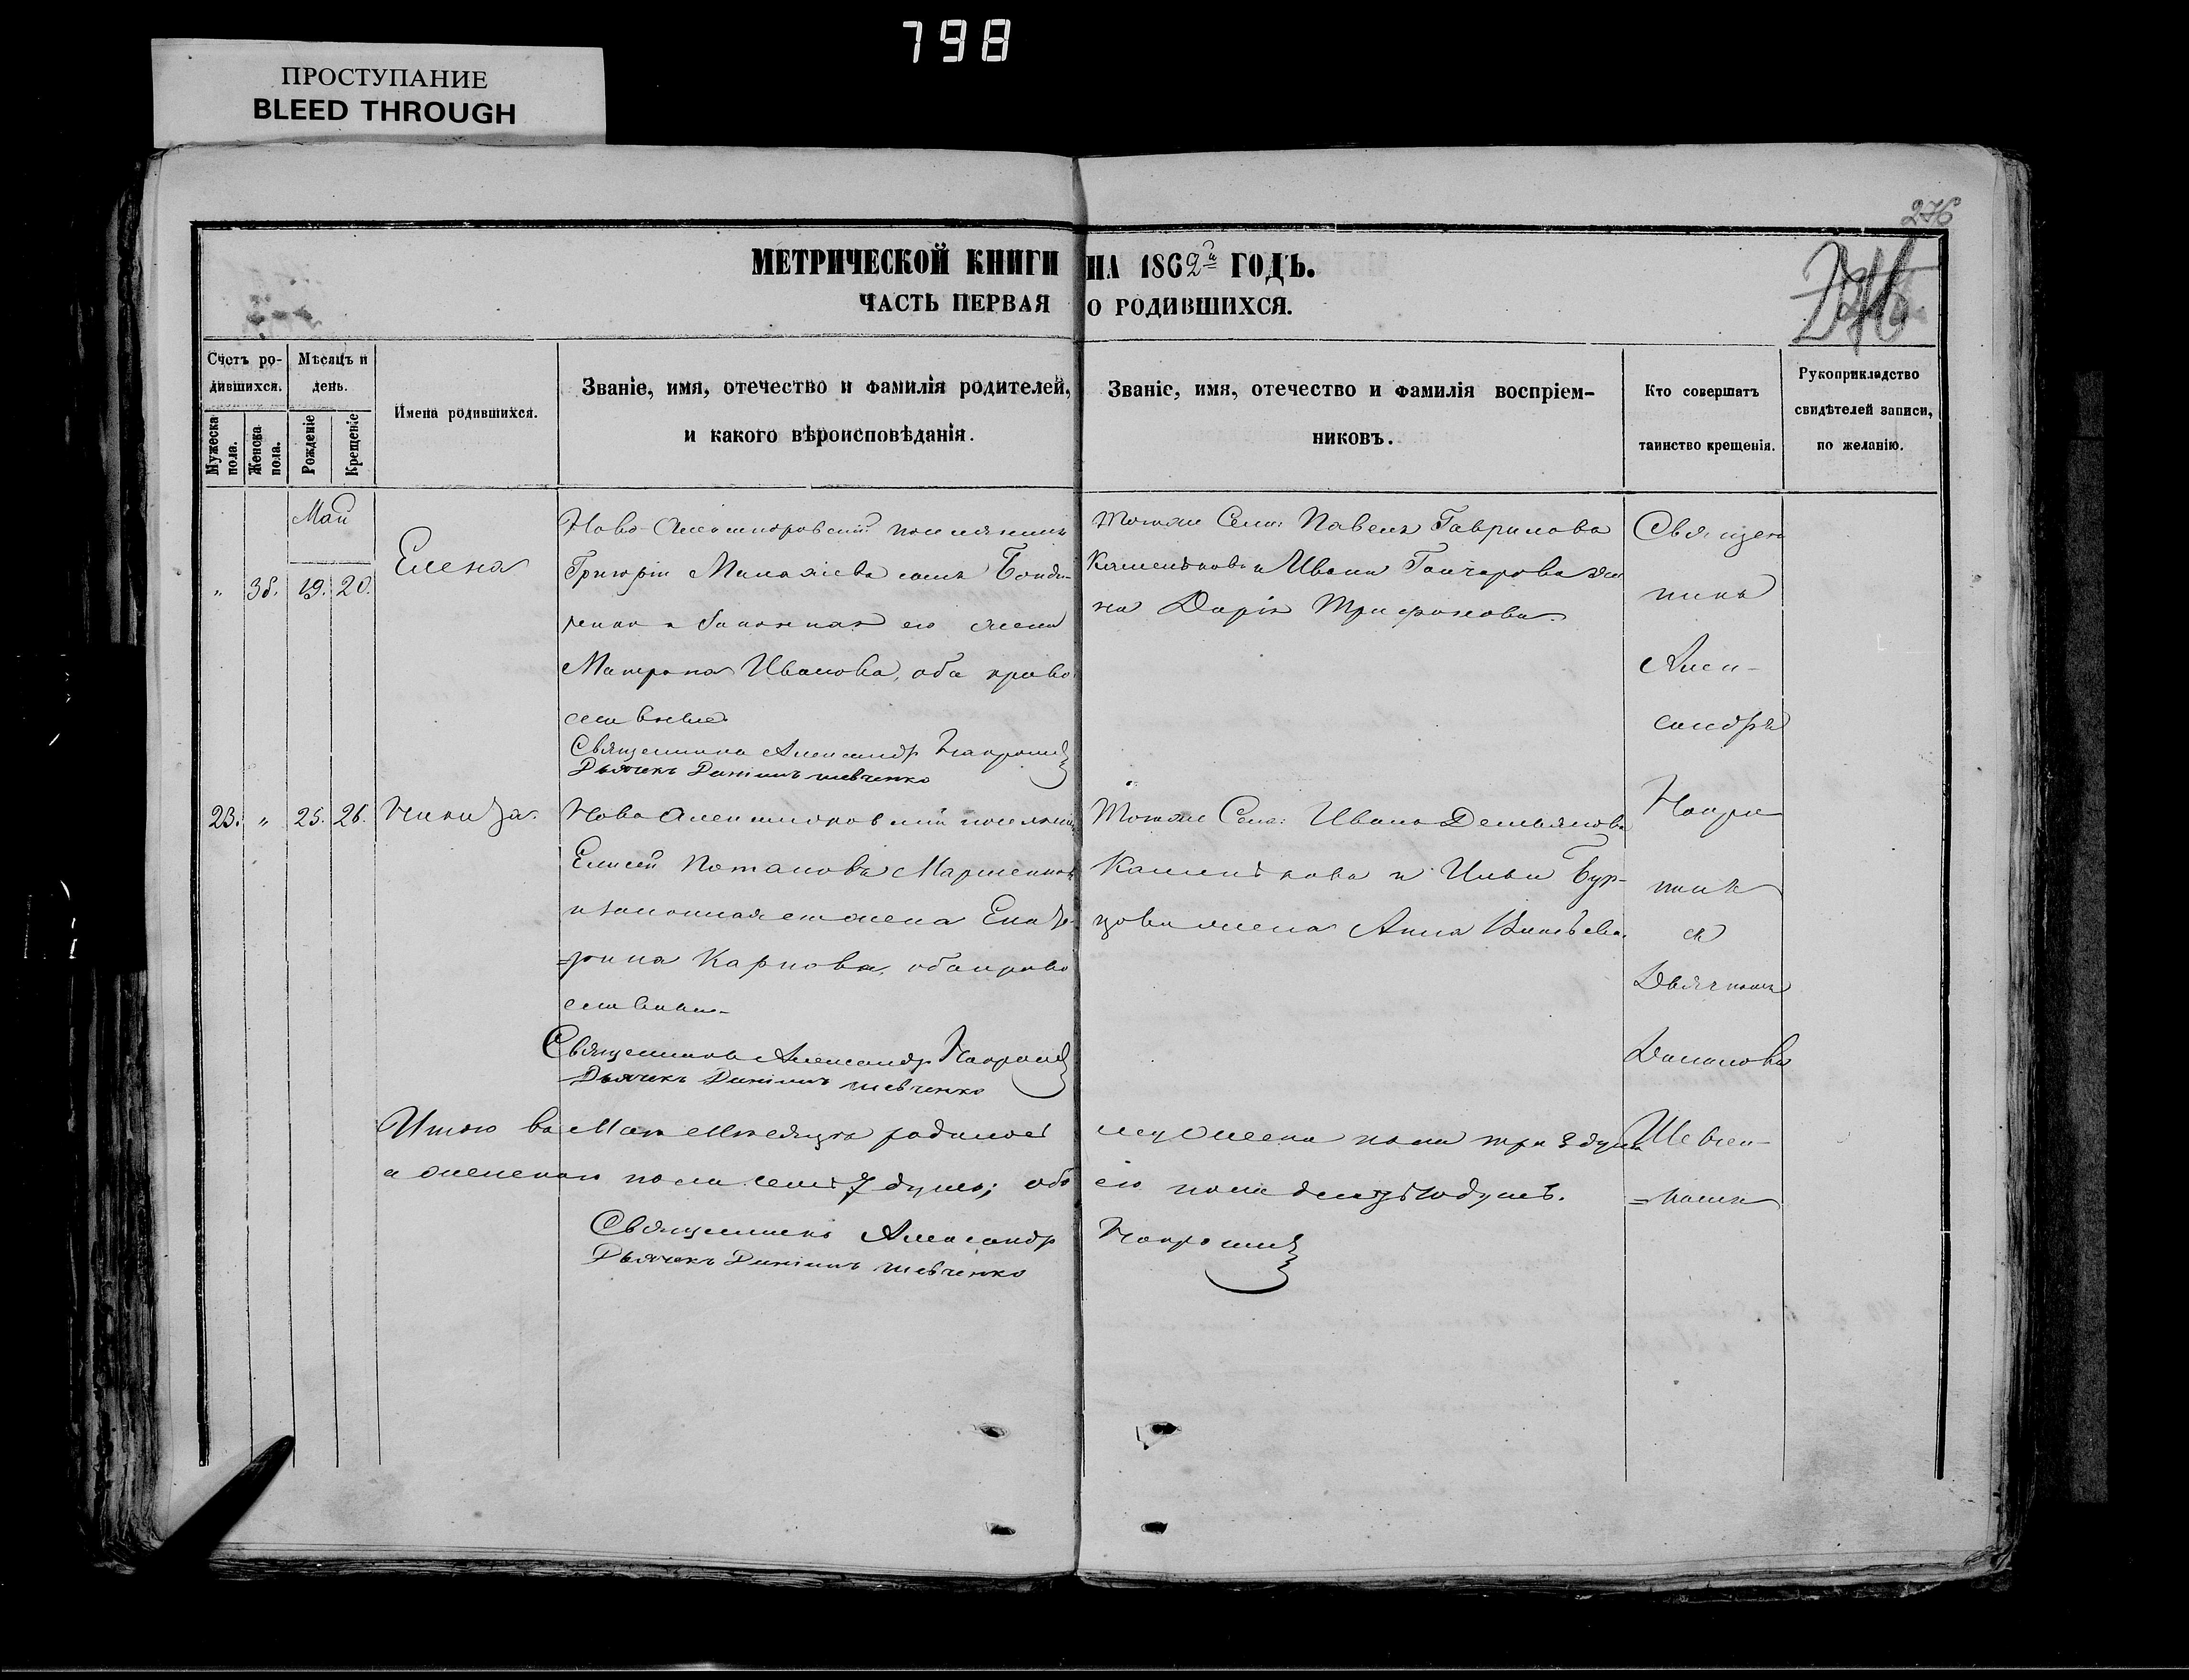 798
ПРОСТУПАНИЕ
BLEED THROUGH
276
МЕТРИЧЕСКОЙ КНИГИ НА 1862й ГОДЪ.
ЧАСТЬ ПЕРВАЯ О РОДИВШИХСЯ.
276
Счетъ ро-
дившихся.
Мужеска пола.
Женска пола.
Мѣсяцъ и
день.
Рожденіе
Крещеніе
Имена родившихся.
Званіе, имя, отечество и фамилія родителей,
и какого вѣроисповѣданія.
Званіе, имя, отечество и фамилія воспріем-
никовъ.
Кто совершатъ
таинство крещенія.
Рукоприкладство
свидѣтелей записи,
по желанію.
Май
„ 38. 19. 20.
Елена
Ново-Александровскій поселянинъ
Григорій сынъ Бонда-
ренко и законная его жена
Матрона Иванова, оба право
славные
Священникъ Александръ
Дьячекъ Даніилъ Шевченко
Тогоже Села: Павелъ Гаврилова
и Ивана Гончарова же
на Дарія Трифонова.
23. „ 25. 26.
Никита.
Ново Александровскій поселянинъ
Елисей Потаповъ
и законная его жена Екате-
=рина Карпова, оба право
славные
Священникъ Александръ
Дьячекъ Даніилъ Шевченко
Тогоже Села: Иванъ Демьянова
и Ильи Бур-
цова жена Анна
Священ
никъ
Алек-
сандръ
съ
Дьячкомъ
Даниловъ
Шевчен-
=комъ
Итого въ Маѣ Мѣсяцѣ родилось мужеска пола три 3 души
а женскаго пола семь 7 душъ; обоего пола десять 10 душъ.
Священникъ Александръ
Дьячекъ Даніилъ Шевченко